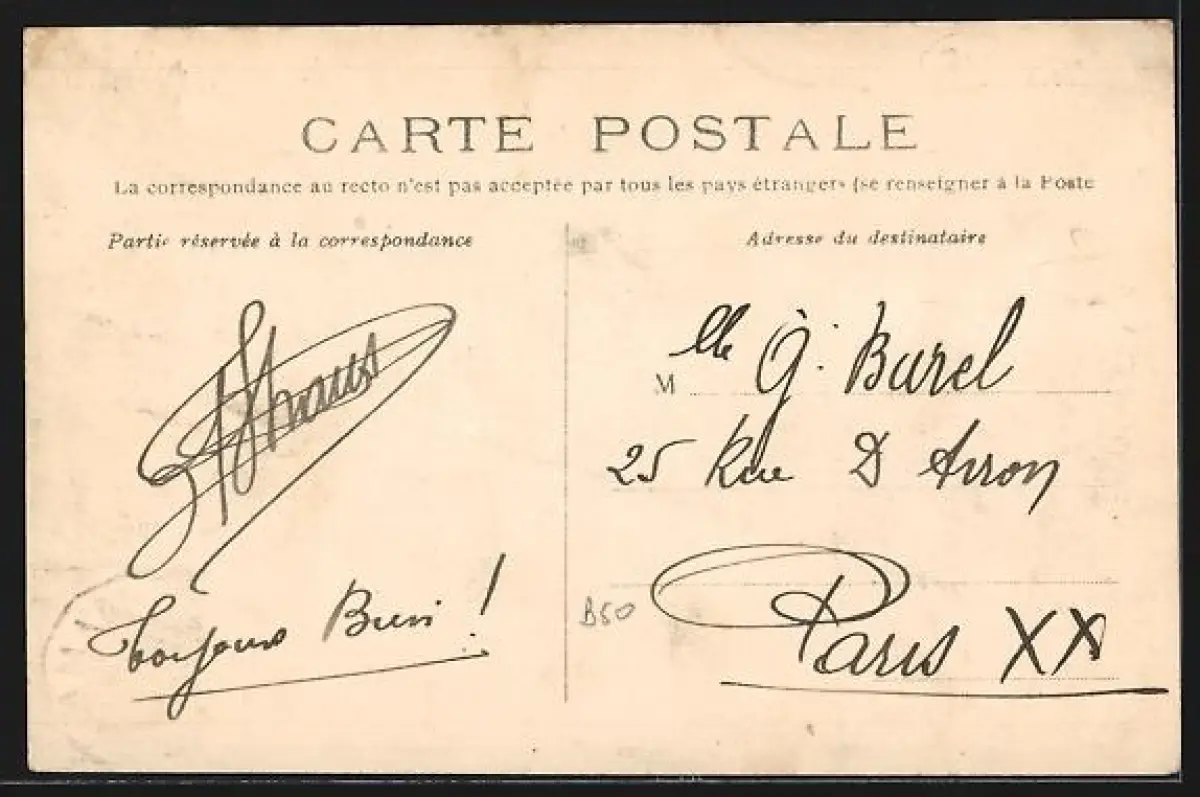 CARTE POSTALE
La correspondance au recto n'est pas acceptée par tous les pays étrangers (se renseigner à la Poste
Partie réservée à la correspondance
Toujours Bien !
B50
Adresse du destinataire
M lle G. Burel
25 Rue D Avron
Paris XX